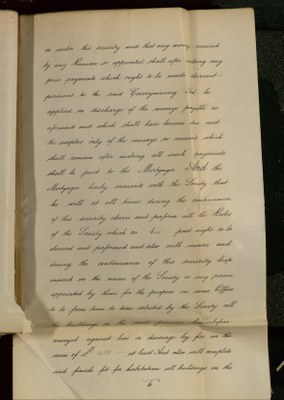 or under this security and that any money received
by any Receiver so appointed shall after making any
prior payments which ought to be made thereout
pursuant to the said Conveyancing Act be
applied in discharge of the moneys payable as
aforesaid and which shall have become due and
the surplus only of the moneys so received which
shall remain after making all such payments
shall be paid to the Mortgagor And the
Mortgagor hereby covenants with the Society that
he will at all times during the continuance
of this security observe and perform all the Rules
of the Society which on his part ought to be
observed and performed and also will insure and
during the continuance of this security keep
insured in the names of the Society or any person
appointed by them for the purpose in some Office
to be from time to time selected by the Society all
the buildings on the said premises hereinbefore
assured against loss or damage by fire in the
sum of at least And also will complete
and finish fit for habitation all buildings on the
6